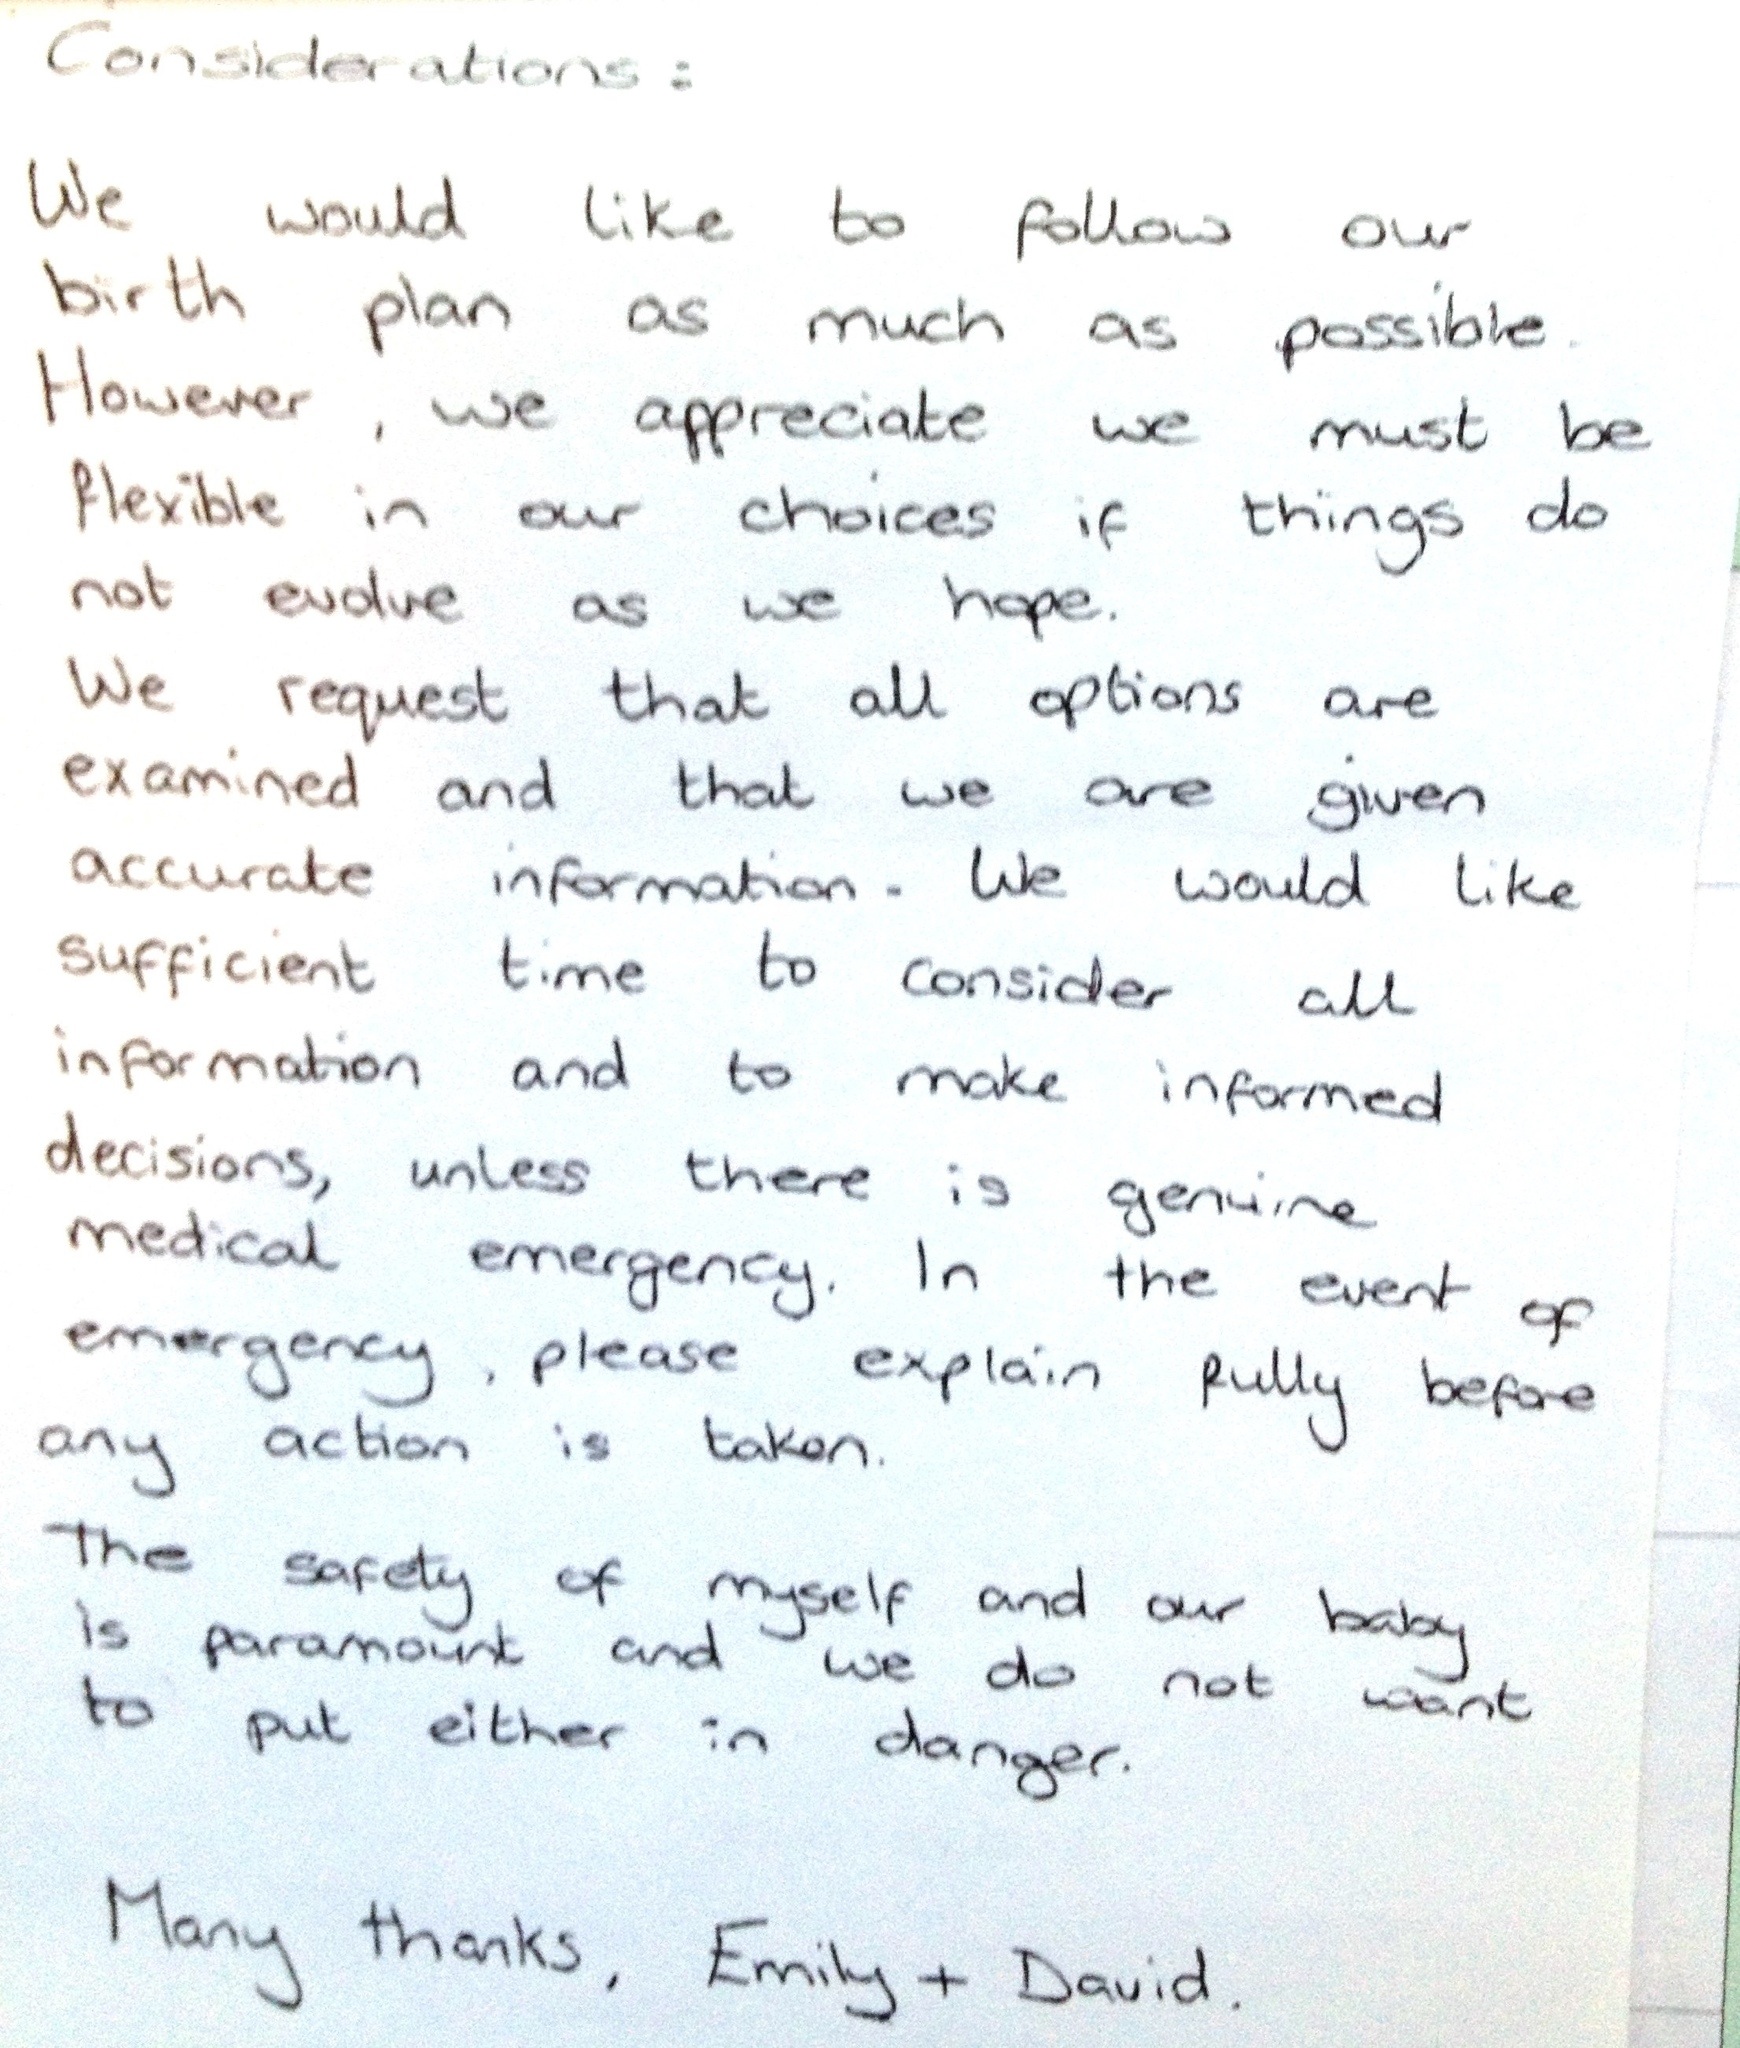 Considerations:
We would like to follow our
birth plan as much as possible.
However, we appreciate we must be
flexible in our choices if things do
not evolve as we hope.
We request that all options are
examined and that we are given
accurate information. We would like
sufficient time to consider all
information and to make informed
decisions, unless there is genuine
medical emergency. In the event of
emergency, please explain fully before
any action is taken.
The safety of myself and our baby
is paramount and we do not want
to put either in danger.
Many thanks, Emily + David.